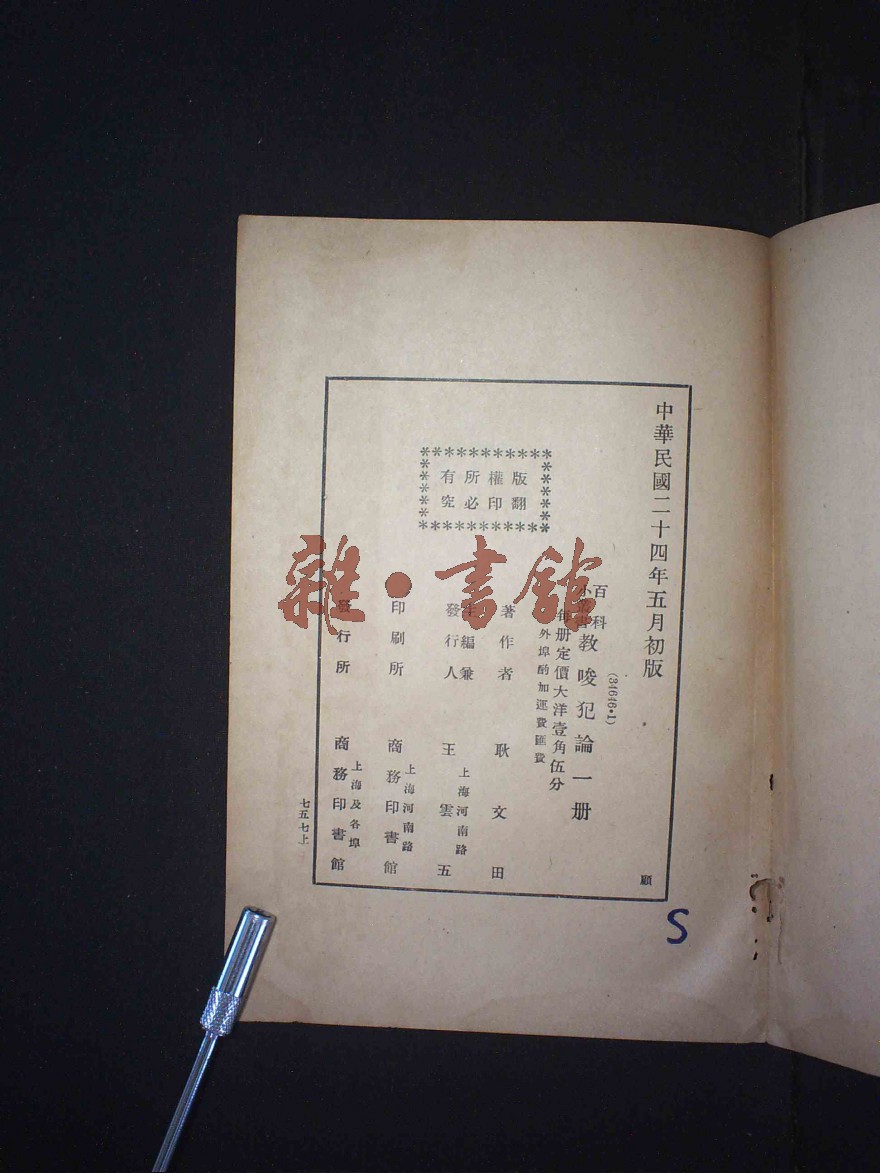 中華民國二十四年五月初版
顧
(34646•1)
百科
小叢書
教唆犯論一册
每册定價大洋壹角伍分
外埠酌加運費匯費
版權所有
翻印必究
著作者 耿文田
主編兼
發行人 王雲五
上海河南路
印刷所 商務印書館
上海河南路
發行所 商務印書館
上海及各埠
七五七上
雜•書館
S